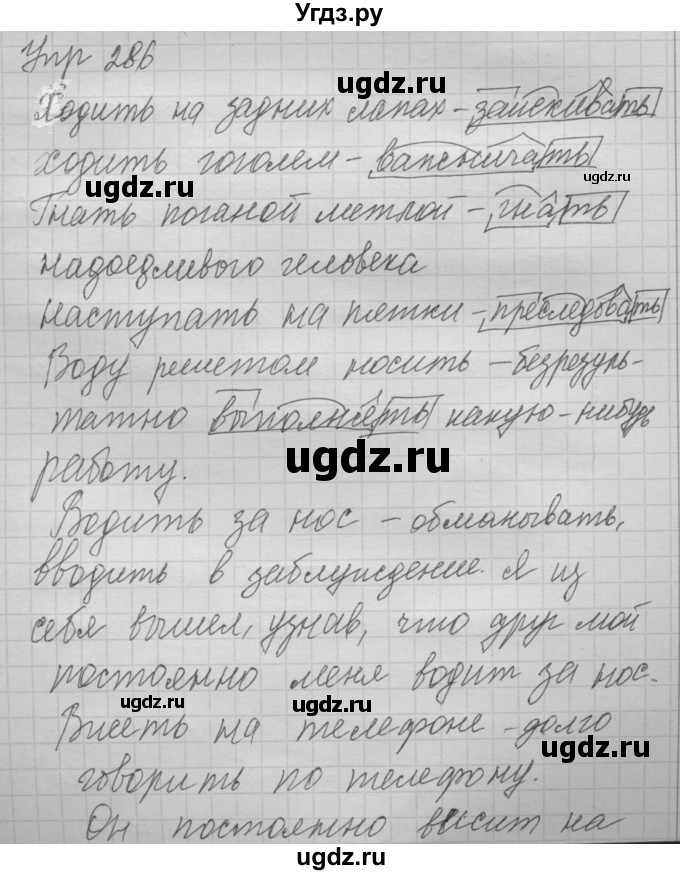 Угдз.ру
Упр 286
Ходить на задних лапах - заискивать
ходить гоголем - важничать
Гнать поганой метлой - гнать
надоедливого человека
наступать на пятки - преследовать
Воду решетом носить - безрезуль-
татно выполнять какую-нибудь
работу.
Водить за нос - обманывать,
вводить в заблуждение. Я из
себя вышел, узнав, что друг мой
постоянно меня водит за нос.
Висеть на телефоне - долго
говорить по телефону.
Он постоянно висит на
ugdz.ru
ugdz.ru
ugdz.ru
ugdz.ru
ugdz.ru
ugdz.ru
ugdz.ru
ugdz.ru
ugdz.ru
ugdz.ru
ugdz.ru
ugdz.ru